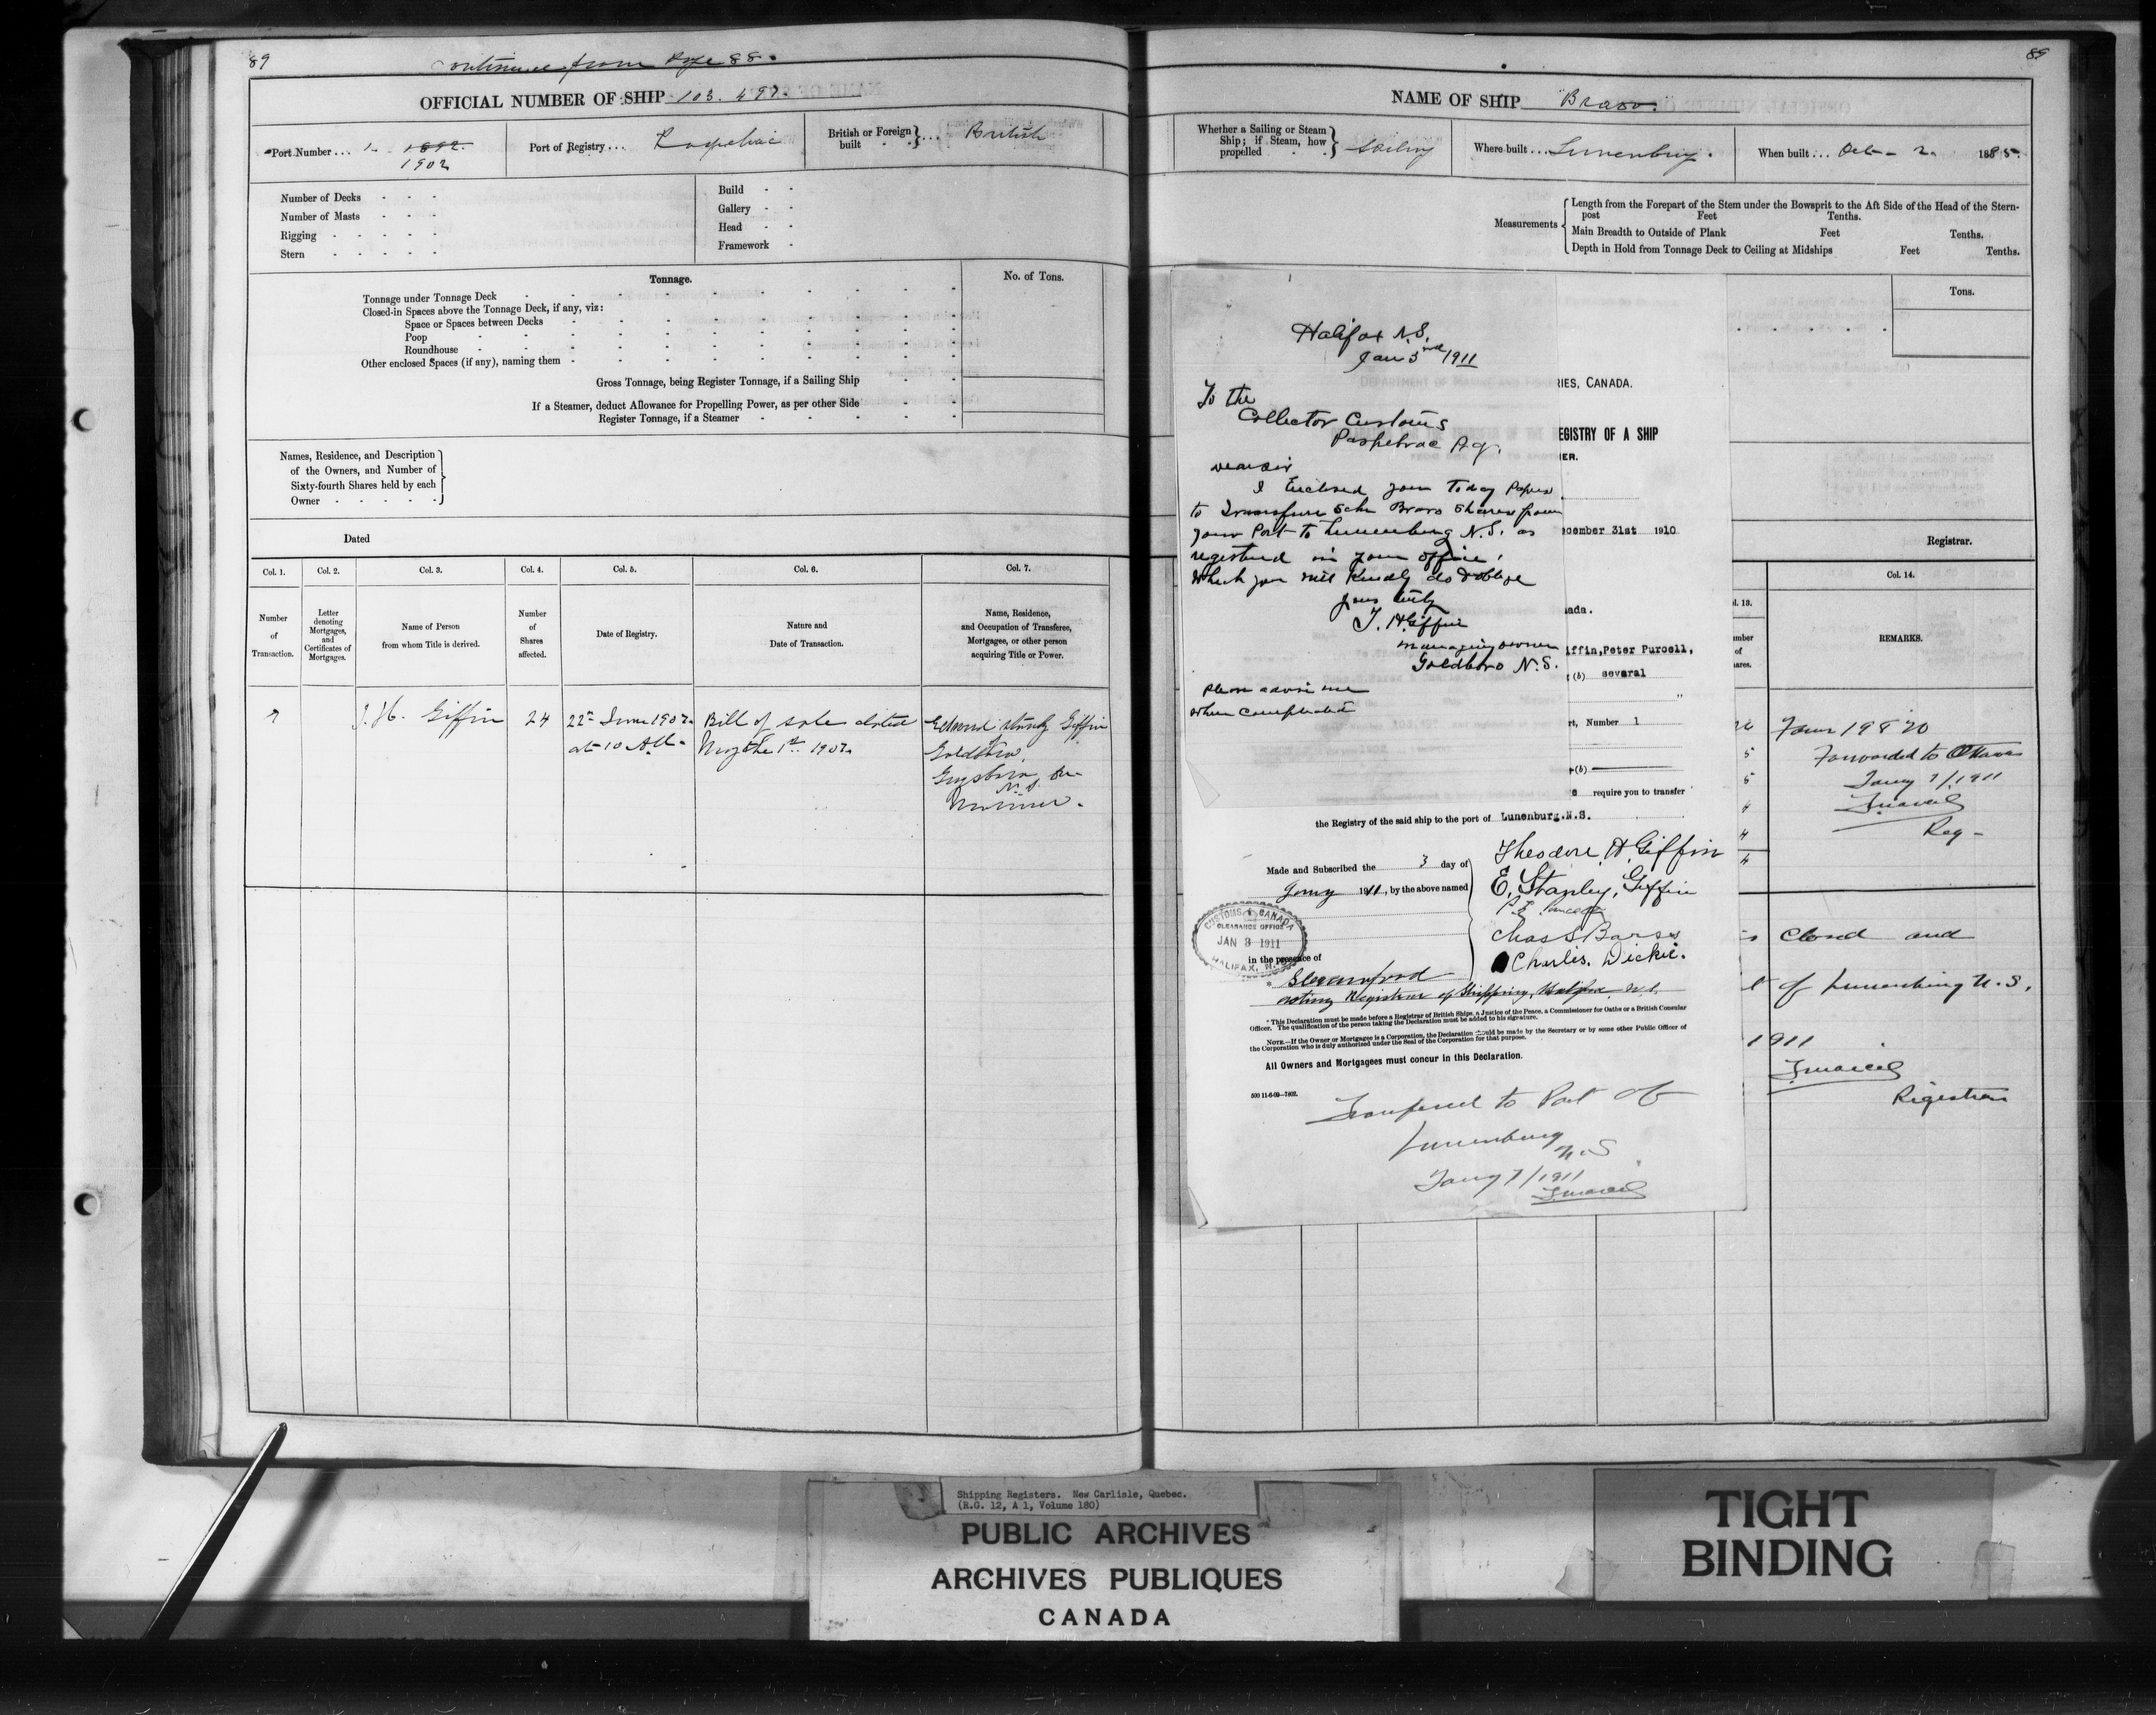 89
Continued from Page 88.
OFFICIAL NUMBER OF SHIP 103.497.
Port Number ... 1 1892
1902
Port of Registry ... Paspebiac
British or Foreign built } ... British
Number of Decks
Number of Masts
Rigging
Stern
Build
Gallery
Head
Framework
Tonnage.
No. of Tons.
Tonnage under Tonnage Deck
Closed-in Spaces above the Tonnage Deck, if any, viz:
Space or Spaces between Decks
Poop
Roundhouse
Other enclosed Spaces (if any), naming them
Gross Tonnage, being Register Tonnage, if a Sailing Ship
If a Steamer, deduct Allowance for Propelling Power, as per other Side
Register Tonnage, if a Steamer
Names, Residence, and Description
of the Owners, and Number of
Sixty-fourth Shares held by each
Owner
Dated
Col. 1.
Col. 2.
Col. 3.
Col. 4.
Col. 5.
Col. 6.
Col. 7.
Number
of
Transaction.
Letter
denoting
Mortgages,
and
Certificates of
Mortgages.
Name of Person
from whom Title is derived.
Number
of
Shares
affected.
Date of Registry.
Nature and
Date of Transaction.
Name, Residence,
and Occupation of Transferee,
Mortgagee, or other person
acquiring Title or Power.
7
J. H. Giffin
24
22nd June 1907
at 10 A.M.
Bill of sale dated
May the 1st 1907.
Edmund Stanley Giffin
of
Goldboro,
Guysboro, Co
N.S.
Mariner.
89
NAME OF SHIP "Bravo."
Whether a Sailing or Steam
Ship; if Steam, how
propelled
Sailing
Where built ... Lunenburg.
When built ... Oct- 2. 1895.
Measurements
Length from the Forepart of the Stem under the Bowsprit to the Aft Side of the Head of the Stern-
post Feet Tenths.
Main Breadth to Outside of Plank Feet Tenths.
Depth in Hold from Tonnage Deck to Ceiling at Midships Feet Tenths.
Tons.
Registrar.
Halifax N.S.
Jan 3rd 1911
To the
Collector Customs
Paspebiac P.Q.
Dear Sir
I Enclosed you Today Papers
to Transfure Schr Bravo Shares from
your Port to Lunenburg N.S. as
registered in your office,
Which you will Kindly do & oblige
yours truly
T. H. Giffin
managing owner
Goldboro N.S.
Please advise me
When Completed
RIES, CANADA.
EGISTRY OF A SHIP
ER.
cember 31st 1910
ada.
iffin,Peter Purcell,
(b) several
"
rt, Number 1
(b)
require you to transfer
the Registry of the said ship to the port of Lunenburg.N.S.
Made and Subscribed the 3 day of
Jany 1911, by the above named
Theodore H Giffin
E. Stanley Giffin
Chas S Barss
Charlis. Dickie.
CUSTOMS CANADA
CLEARANCE OFFICE
JAN 3 1911
HALIFAX, N.S.
in the presence of
acting Registrar of Shipping, Halifax N.S.
* This Declaration must be made before a Registrar of British Ships, a Justice of the Peace, a Commissioner for Oaths or a British Consular
Officer. The qualification of the person taking the Declaration must be added to his signature.
NOTE.—If the Owner or Mortgagee is a Corporation, the Declaration should be made by the Secretary or by some other Public Officer of
the Corporation who is duly authorised under the Seal of the Corporation for that purpose.
All Owners and Mortgagees must concur in this Declaration.
500 11-6-09—7802.
Transfered to Port of
Lunenburg
N.S
Jany 7/1911
l. 13.
mber
of
ares.
Col. 14.
REMARKS.
5
5
4
4
4
Form 19 & 20
Forwarded to Ottawa
Jany 7/1911
Reg-
Closed and
of Lunenburg N.S.
1911
Registrar
Shipping Registers. New Carlisle, Quebec.
(R.G. 12, A 1, Volume 180)
PUBLIC ARCHIVES
ARCHIVES PUBLIQUES
CANADA
TIGHT
BINDING